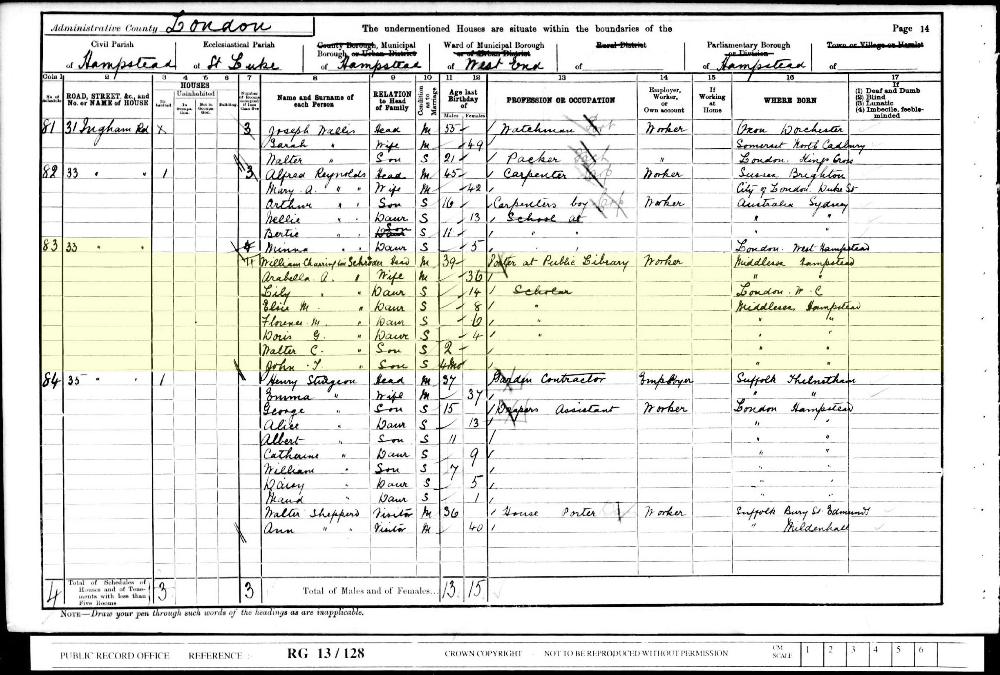 Administrative County London The undermentioned Houses are situate within the boundaries of the Page 14
Civil Parish Ecclesiastical Parish County Borough, Municipal Borough, or Urban District Ward of Municipal Borough or of Urban District Rural District Parliamentary Borough or Division Town or Village or Hamlet
of Hampstead of St Luke of Hampstead of West End of of Hampstead of
Cols. 1 2 3 4 5 6 7 8 9 10 11 12 13 14 15 16 17
No. of Schedule ROAD, STREET, &c., and No. or NAME of HOUSE HOUSES Uninhabited Building Name and Surname of each Person RELATION to Head of Family Condition as to Marriage Age last Birthday of Males Females PROFESSION OR OCCUPATION Employer, Worker, or Own account If Working at Home WHERE BORN (1) Deaf and Dumb (2) Blind (3) Lunatic (4) Imbecile, feeble-minded
81 31 Ingham Rd X 3 Joseph Wallis Head M 53 Watchman Worker Oxon Dorchester
Sarah " Wife M 49 Somerset North Cadbury
Walter " Son S 21 Packer " London. Kings Cross
82 33 " " 1 3 Alfred Reynolds Head M 45 Carpenter Worker Sussex Brighton
Mary A. " " Wife M 42 City of London Duke St
Arthur " " Son S 16 Carpenters boy Worker Australia Sydney
Nellie " " Daur S 13 School at " "
Bertie " " Son S 11 " " " "
83 33 " " 4 Minna " " Daur S 5 London. West Hampstead
William Charrington Schröder Head M 39 Porter at Public Library Worker Middlesex Hampstead
Arabella A. " Wife M 36 " "
Lily " " Daur S 14 Scholar London. W.C
Elsie M. " Daur S 8 " Middlesex Hampstead
Florence M. " Daur S 6 " " "
Doris G. " Daur S 4 " " "
Walter C. " Son S 2 " "
John T " Son S 4 Mo " "
84 35 " " 1 Henry Sturgeon Head M 37 Garden Contractor Employer Suffolk Thelnetham
Emma " Wife M 37 " "
George " Son S 15 Drapers Assistant Worker London Hampstead
Alice " Daur S 13 " "
Albert " Son S 11 " "
Catherine " Daur S 9 " "
William " Son S 7 " "
Daisy " Daur S 5 " "
Maud " Daur S 1 " "
Walter Shepperd Visitor M 36 House Porter Worker Suffolk Bury St Edmunds
Ann " " Visitor M 40 " Mildenhall
4 Total of Schedules of Houses and of Tenements with less than Five Rooms 3 3 Total of Males and of Females... 13 15
NOTE—Draw your pen through such words of the headings as are inapplicable.
PUBLIC RECORD OFFICE REFERENCE :- RG 13/128 CROWN COPYRIGHT - NOT TO BE REPRODUCED WITHOUT PERMISSION CM SCALE 1 2 3 4 5 6